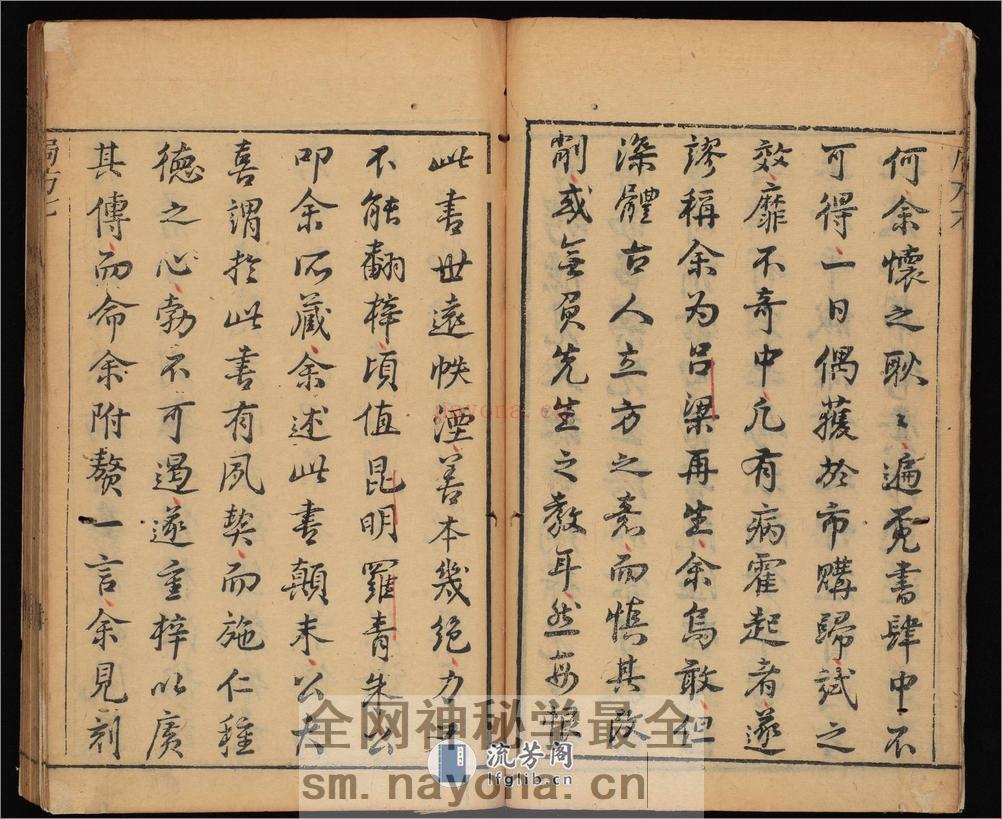 何余懷之耿〻遍覓書肆中不
可得一日偶獲於市購歸試之
效靡不奇中凢有病霍起者遂
謬稱余为吕梁再生余烏敢但
深體古人立方之意而慎其改
削或無負先生之教耳然每恨
此書世遠帙湮善本幾絕力
不能翻梓頃值昆明羅青朱公
叩余所藏余述此書顛末公大
喜謂於此書有夙契而施仁種
德之心勃不可遏遂重梓以廣
其傳而命余附贅一言余見刻
局方
全网神秘学最全
流芳阁
lfglib.cn
sm.nayona.cn
nayona.cn